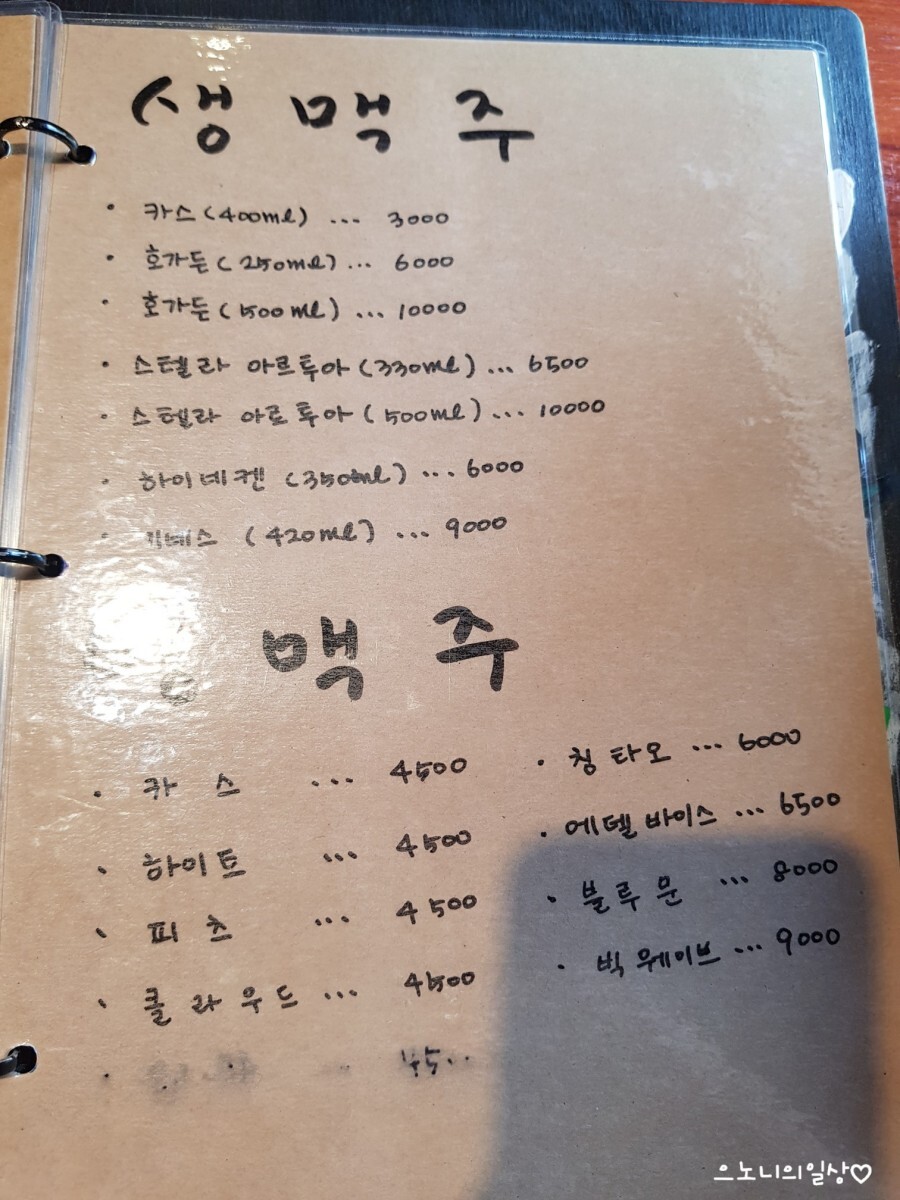 생맥주
· 카스(400ml) ... 3000
· 호가든(250ml)... 6000
· 호가든(500ml) ... 10000
· 스텔라 아르투아(330ml)... 6500
· 스텔라 아르투아(500ml)... 10000
· 하이네켄 (350ml) ... 6000
· (420ml) ... 9000
맥주
· 카스 ... 4500
· 하이트 ... 4500
· 피츠 ... 4500
· 클라우드 ... 4500
· 칭타오 ... 6000
· 에델바이스 ... 6500
· 블루문 ... 8000
· 빅웨이브 ... 9000
으노니의일상♡